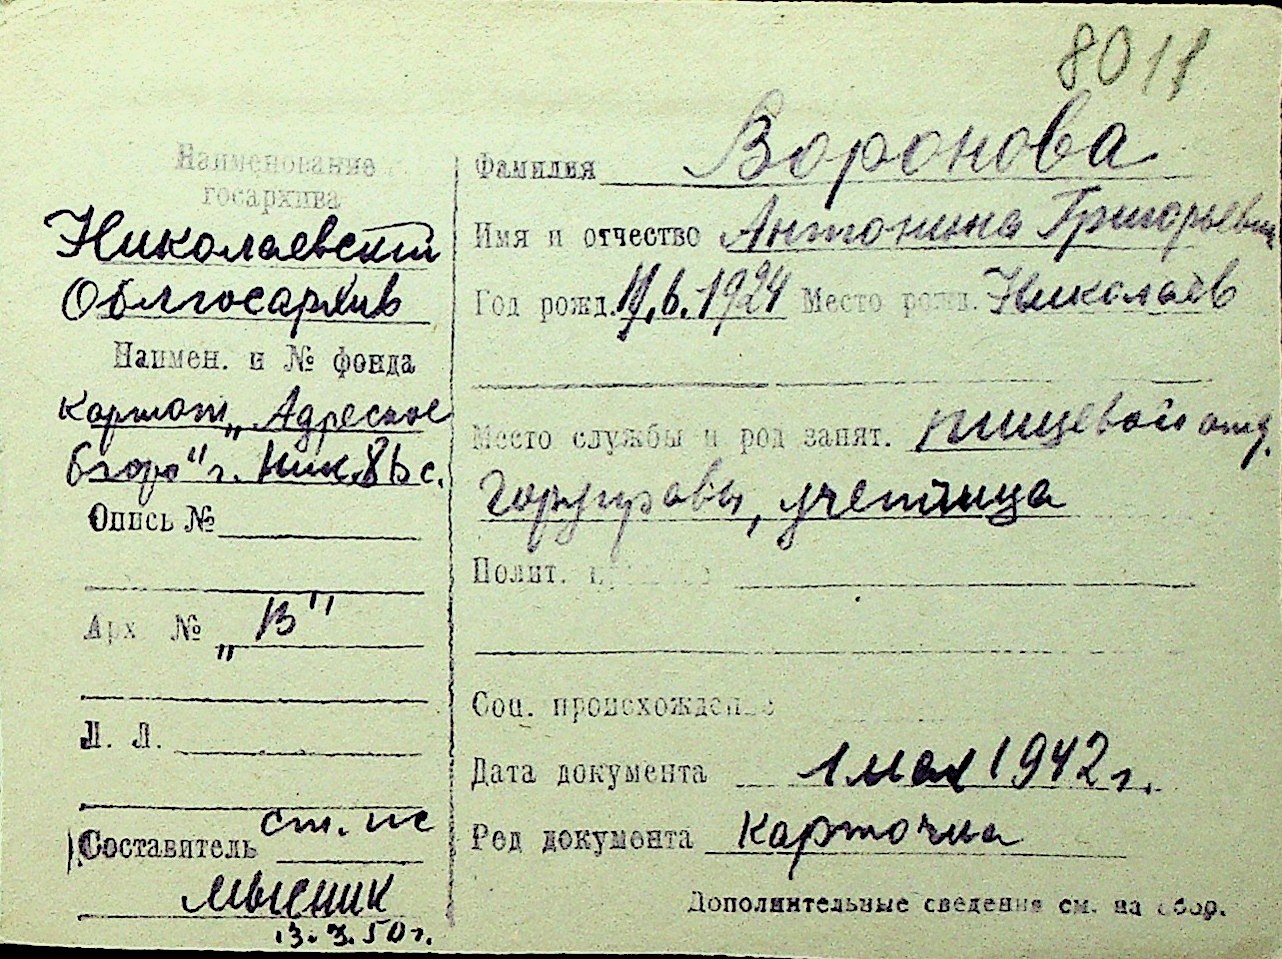 8018
Наименование
госархива
Николаевский
Облгосархив
Наимен. и № фонда
картот. „Адресное
бюро" г. Ник.
Опись №
Арх № „В"
Л. Л.
Составитель ст. нс
Мысник
13.3.50г.
Фамилия Воронова
Имя и отчество Антонина Григорьевн
Год рожд. 11.6.1924 Место рожд. Николаев
Место службы и род занят. пищевой отд.
Горуправы, ученица
Полит.
Соц. происхождение
Дата документа 1 мая 1942 г.
Род документа Карточка
Дополнительные сведения см. на обор.